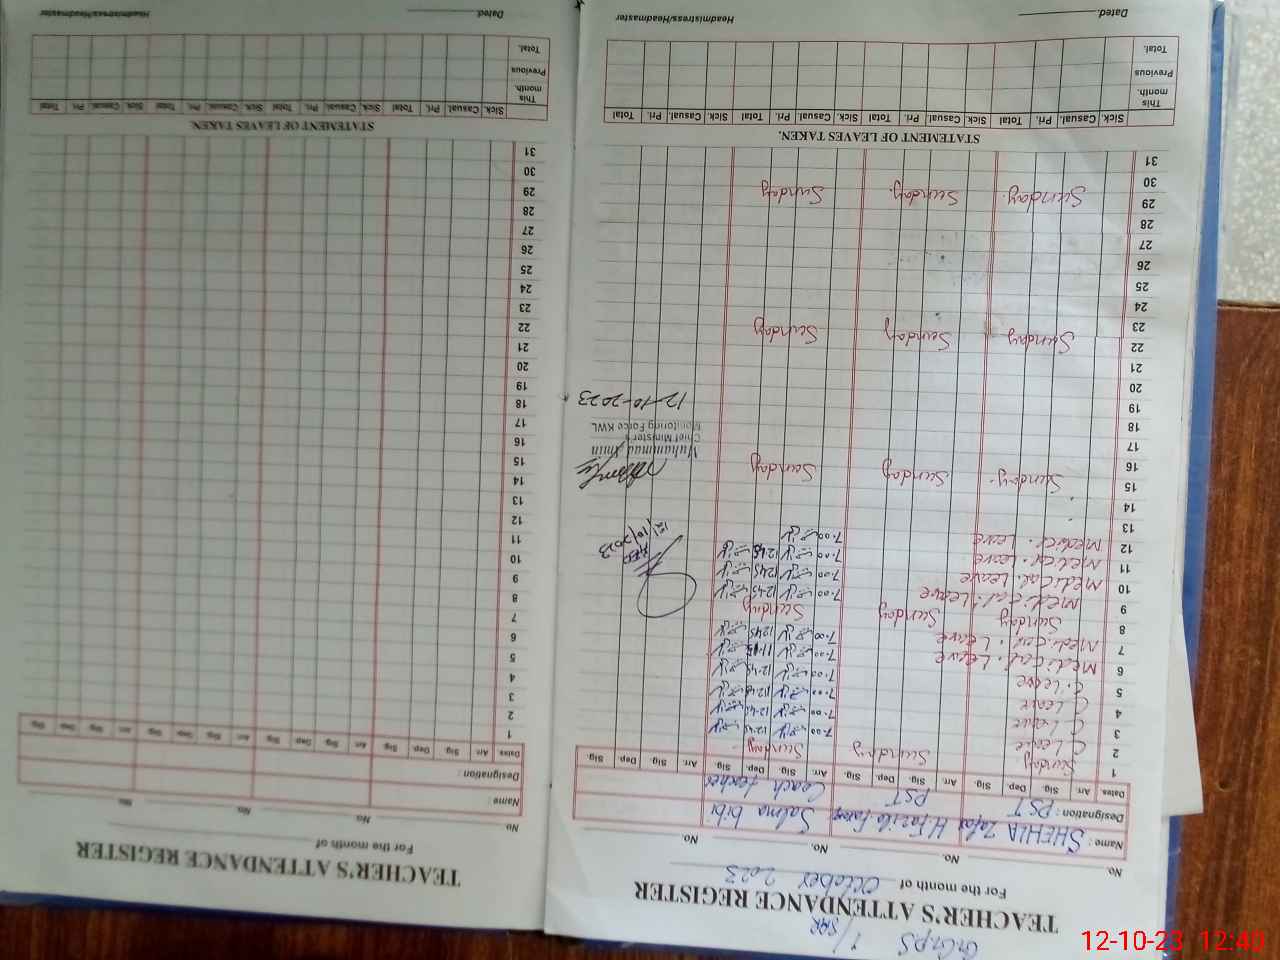 GGPS
1/SAR
TEACHER'S ATTENDANCE REGISTER
For the month of October 2023
No. No. No. No.
Name : SHEHLA Zafar H Fazila Salma bibi
Designation : PST PST Coach teacher
Dates Arr. Sig. Dep. Sig. Arr. Sig. Dep. Sig. Arr. Sig. Dep. Sig. Arr. Sig. Dep. Sig.
1 Sunday Sunday Sunday
2 C Leave 7.00 12.45
3 C Leave 7.00 12.45
4 C Leave 7.00 12.45
5 C. Leave 7.00 12.45
6 Medical. Leave 7.00
7 Medical. Leave 7.00 12.45
8 Sunday Sunday Sunday
9 Medical. Leave 7.00 12.45
10 Medical. Leave 7.00 12.45
11 Medical. Leave 7.00 12.45
12 Medical. Leave 7.00
12/10/2023
13
14
15 Sunday Sunday Sunday
16
Muhammad Amin
Chief Minister's
Monitoring Force KWL
12-10-2023
17
18
19
20
21
22 Sunday Sunday Sunday
23
24
25
26
27
28
29 Sunday. Sunday. Sunday
30
31
STATEMENT OF LEAVES TAKEN.
Sick. Casual. Pri. Total Sick. Casual. Pri. Total Sick. Casual. Pri. Total Sick. Casual. Pri. Total
This month.
Previous
Total.
Dated. Headmistress/Headmaster
TEACHER'S ATTENDANCE REGISTER
For the month of
No. No. No. No.
Name :
Designation :
Dates Arr. Sig. Dep. Sig. Arr. Sig. Dep. Sig. Arr. Sig. Dep. Sig. Arr. Sig. Dep. Sig.
1
2
3
4
5
6
7
8
9
10
11
12
13
14
15
16
17
18
19
20
21
22
23
24
25
26
27
28
29
30
31
STATEMENT OF LEAVES TAKEN.
Sick. Casual. Pri. Total Sick. Casual. Pri. Total Sick. Casual. Pri. Total Sick. Casual. Pri. Total
This month.
Previous
Total.
Dated. Headmistress/Headmaster
12-10-23 12:40